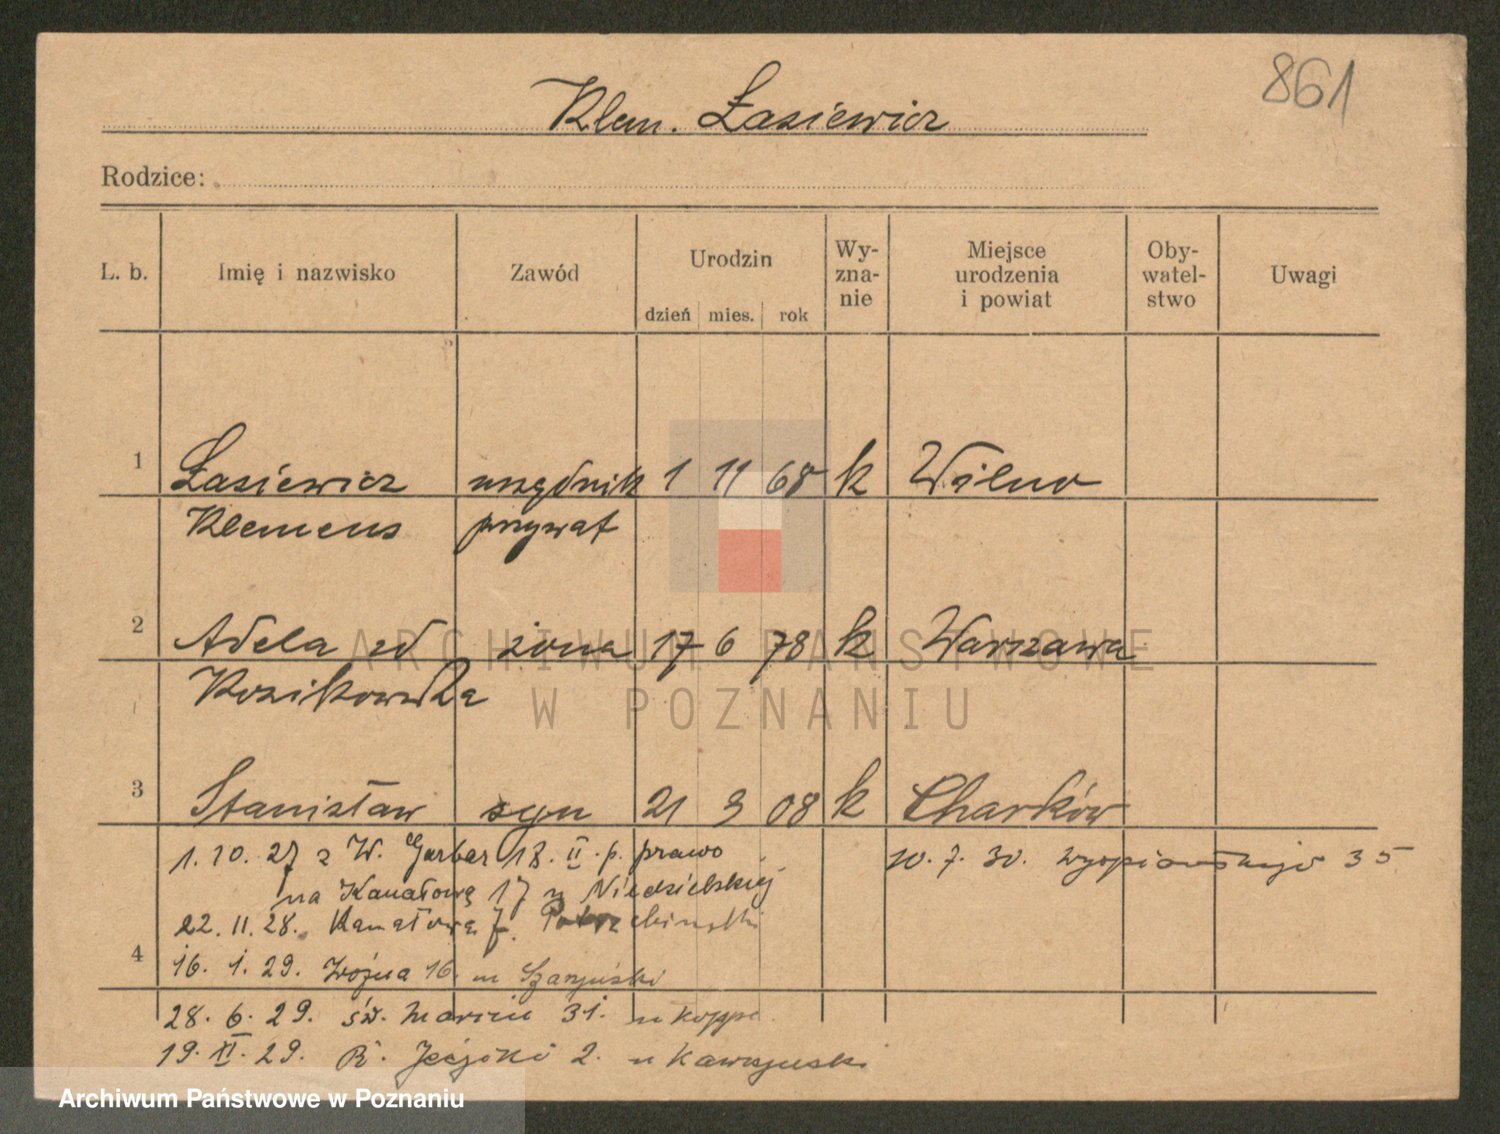 861
Klem. Łasiewicz
Rodzice:
L. b. Imię i nazwisko Zawód Urodzin dzień mies. rok Wy-znanie Miejsce urodzenia i powiat Oby-watel-stwo Uwagi
1 Łasiewicz urzędnik 1 11 68 k Wilno
Klemens prywat
2 Adela zd żona 17 6 78 k Warszawa
Kozikowska
3 Stanisław syn 21 3 08 k Charków
1. 10. 27 z W. Garbar 18. II. p. prawo 10. 7. 30. Wyspiańskiego 35
na Kanałową 17 u Niedzielskiej
22. 11. 28. Kanałowa 7.
4 16. 1. 29. Woźna 16. u
28. 6. 29. św. Marcin 31. u Koppe.
19. XI. 29. R. Jeżycki 2. u
ARCHIWUM PAŃSTWOWE
W POZNANIU
Archiwum Państwowe w Poznaniu